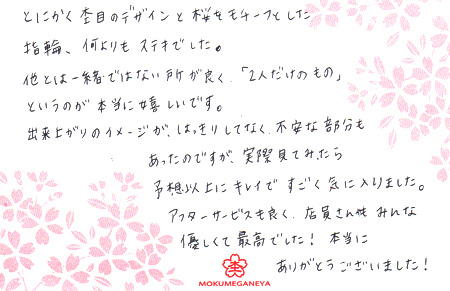 とにかく杢目のデザインと桜をモチーフとした
指輪、何よりもステキでした。
他とは一緒ではない所が良く、「2人だけのもの」
というのが本当に嬉しいです。
出来上がりのイメージが、はっきりしてなく、不安な部分も
あったのですが、実際見てみたら
予想以上にキレイですごく気に入りました。
アフターサービスも良く、店員さん他みんな
優しくて最高でした！本当に
ありがとうございました！
杢
MOKUMEGANEYA